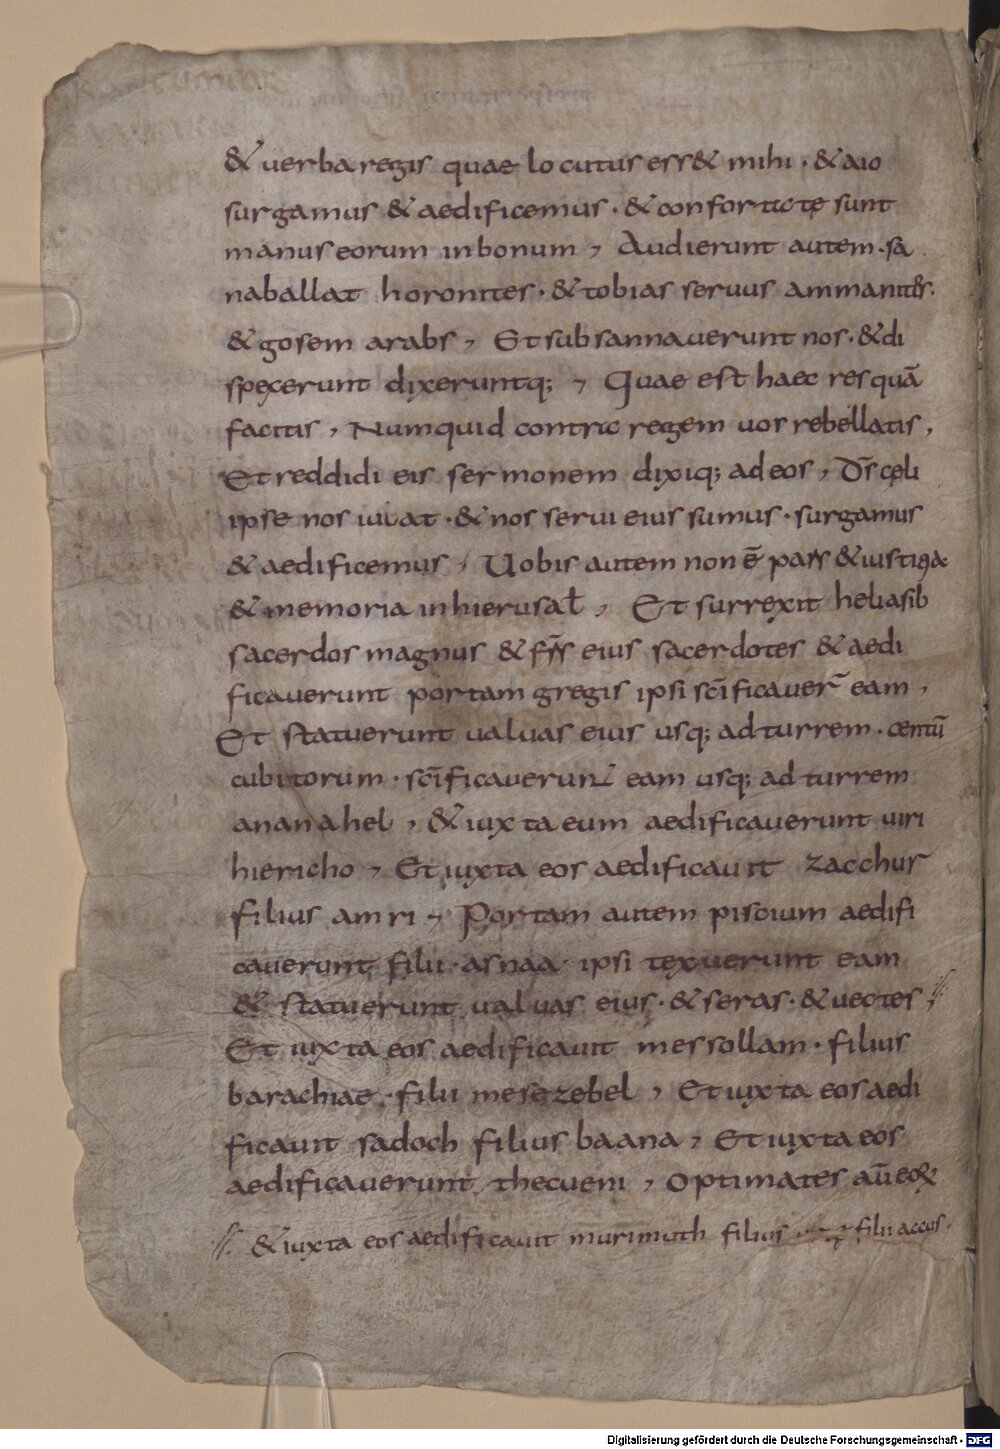 & uerba regis quae locutus ess& mihi · & aio
surgamus & aedificemus · & confortatę sunt
manus eorum inbonum , Audierunt autem · sa
naballat horonites · & tobias seruus ammanites·
& gosem arabs , Et subsannauerunt nos · & di
spexerunt dixeruntq; , Quae est haec res quā
facitis , Numquid contra regem uos rebellatis ,
Et reddidi eis sermonem dixiq; ad eos , Ds̄ cęli
ipse nos iuuat · & nos serui eius sumus · surgamus
& aedificemus , Uobis autem non ē pars & iustitia
& memoria inhierusal̄ , Et surrexit heliasib
sacerdos magnus & frs̄ eius sacerdotes & aedi
ficauerunt portam gregis ipsi sc̄ificauer̄ eam ,
Et statuerunt ualuas eius usq; ad turrem · centū
cubitorum · sc̄ificauerunt eam usq; ad turrem
ananahel , & iuxta eum aedificauerunt uiri
hiericho , Et iuxta eos aedificauit zacchur
filius amri , Portam autem piscium aedifi
cauerunt filii · asnaa · ipsi texuerunt eam
& statuerunt ualuas eius · & seras · & uectes ,
Et iuxta eos aedificauit messollam · filius
barachiae · filii mesezebel , Et iuxta eos aedi
ficauit sadoch filius baana , Et iuxta eos
aedificauerunt thecueni , Optimates aū eoꝝ
& iuxta eos aedificauit murimuth filius filii accus ·
Digitalisierung gefördert durch die Deutsche Forschungsgemeinschaft - DFG